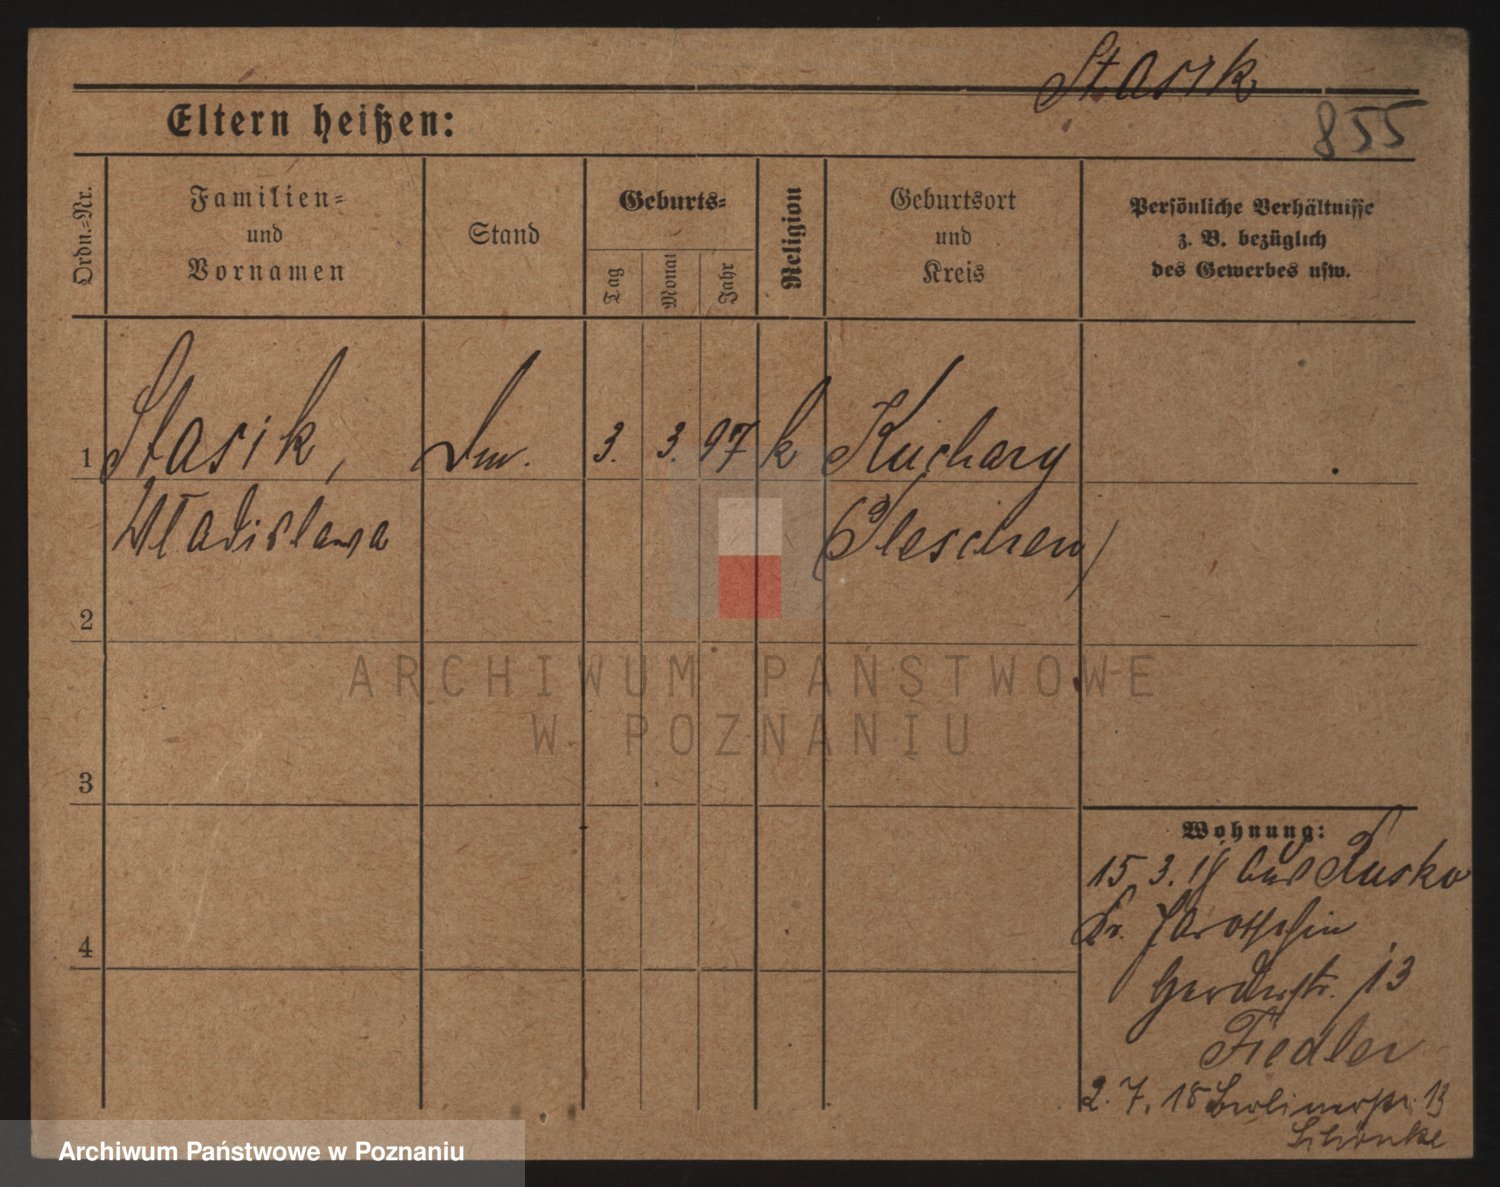 Stasik
855
Eltern heißen:
Ordn.-Nr.
Familien-
und
Vornamen
Stand
Geburts-
Tag
Monat
Jahr
Religion
Geburtsort
und
Kreis
Persönliche Verhältnisse
z. B. bezüglich
des Gewerbes usw.
1 Stasik, 3. 3. 97 k Kuchary
Wladislawa (Pleschen)
2
3
4
ARCHIWUM PAŃSTWOWE
W POZNANIU
Wohnung:
15. 3. aus Rusko
Kr. Jarotschin
Gerberstr. 13
Fiedler
2. 7. 18 Berlinerstr. 13
Archiwum Państwowe w Poznaniu